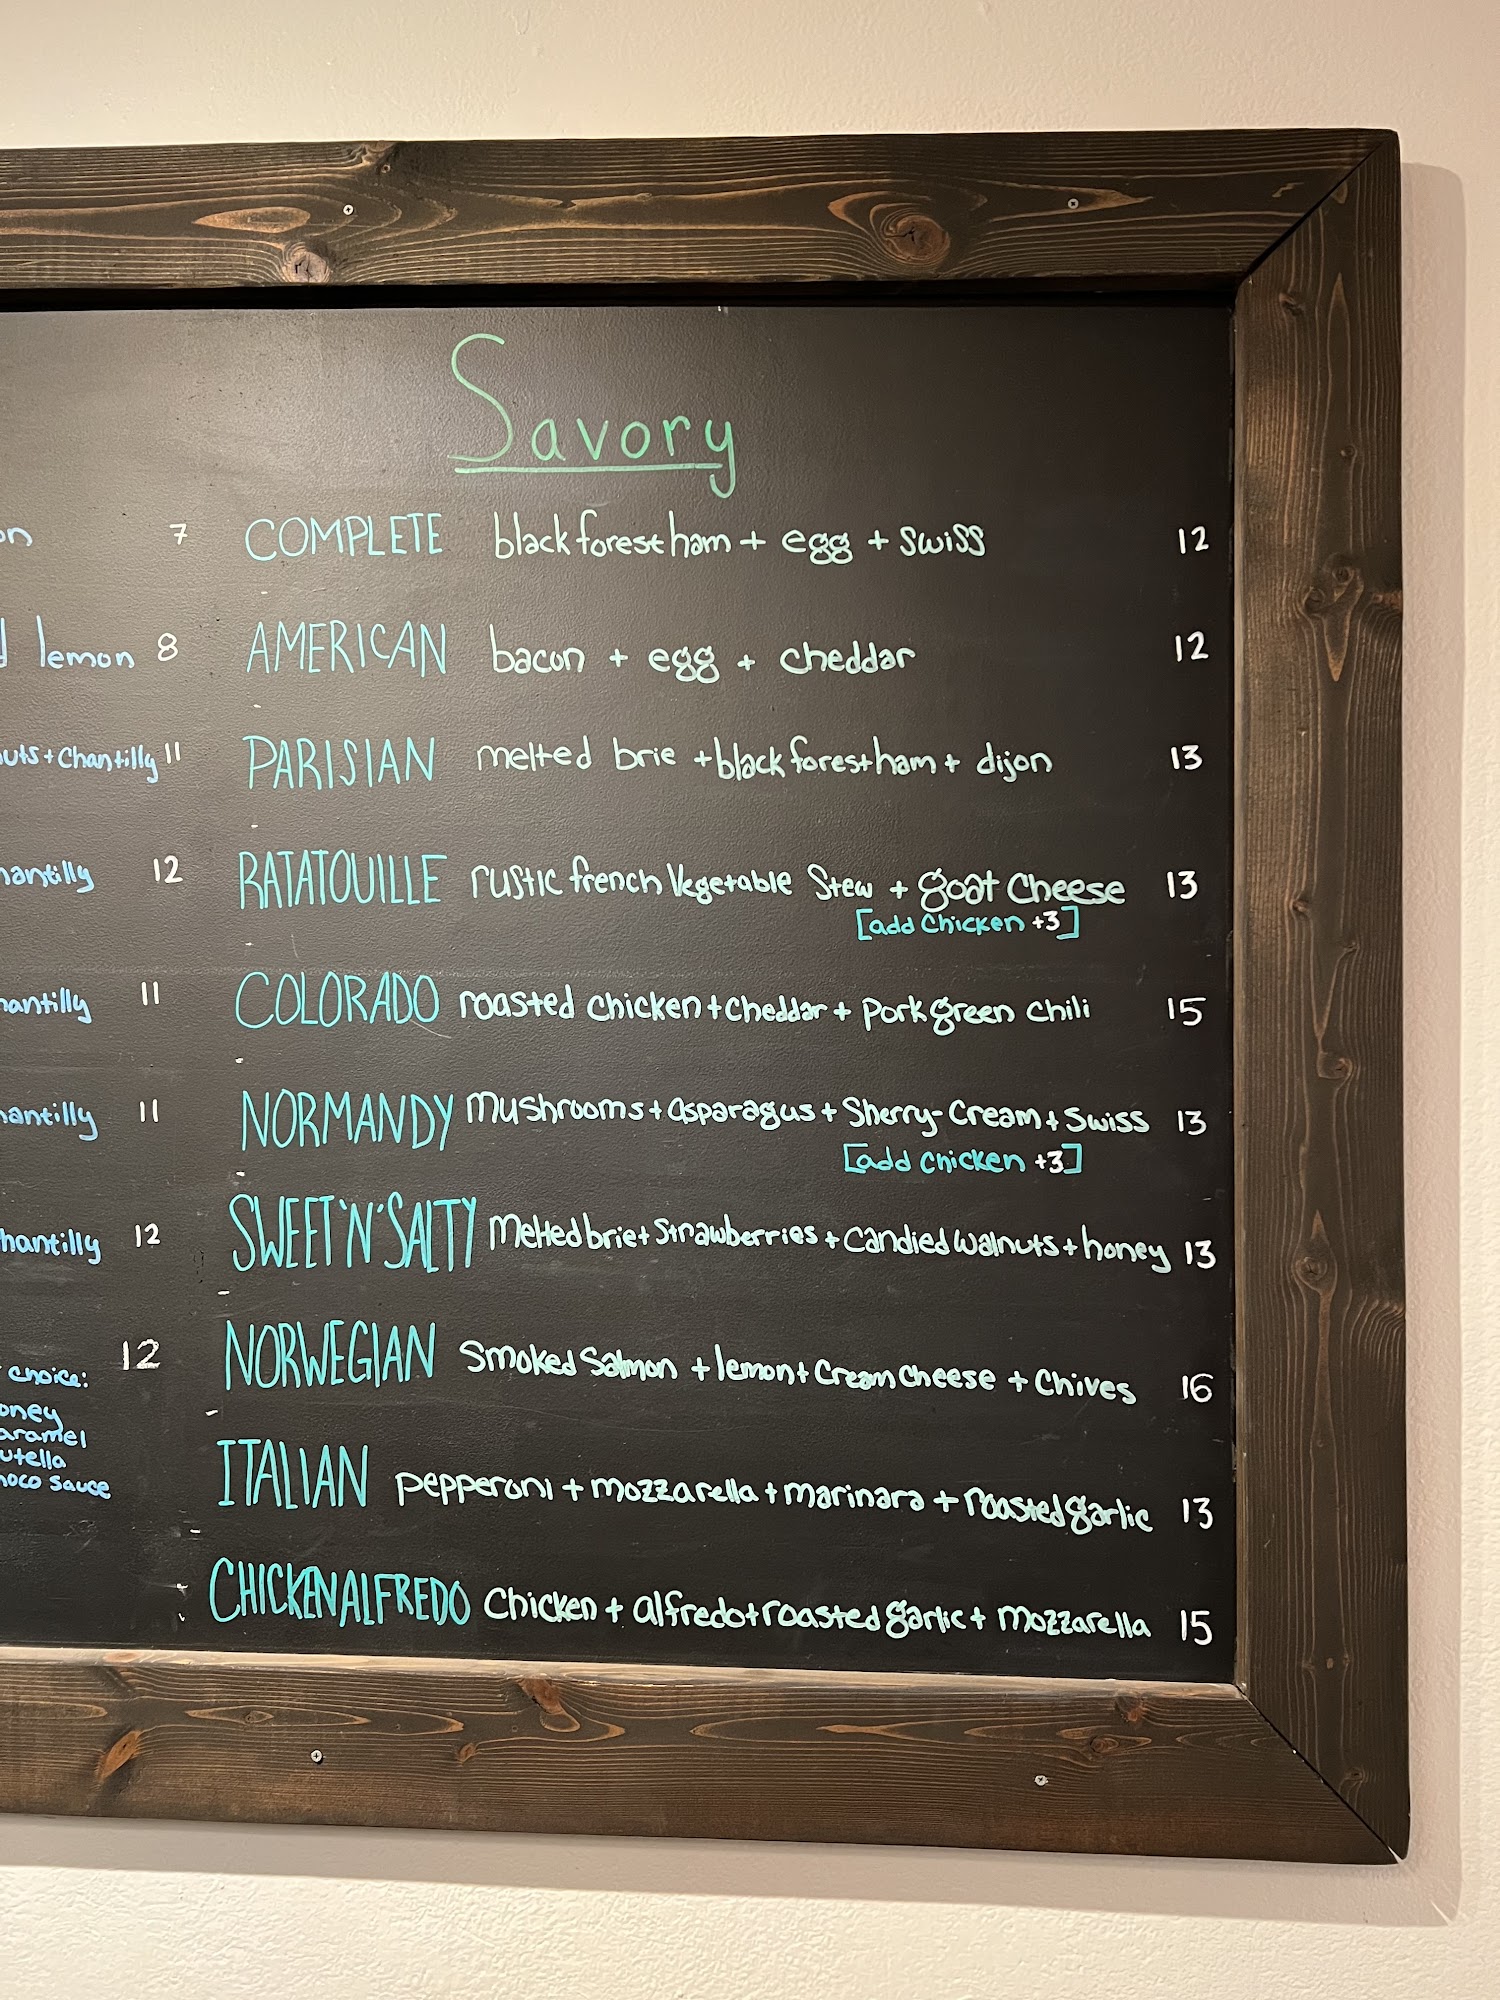 Savory
COMPLETE black forest ham + egg + swiss 12
AMERICAN bacon + egg + cheddar 12
PARISIAN melted brie + black forest ham + dijon 13
RATATOUILLE rustic french vegetable stew + goat cheese 13
[add chicken +3]
COLORADO roasted chicken + cheddar + pork green chili 15
NORMANDY mushrooms + asparagus + sherry-cream + swiss 13
[add chicken +3]
SWEET 'N' SALTY melted brie + strawberries + candied walnuts + honey 13
NORWEGIAN smoked salmon + lemon + cream cheese + chives 16
ITALIAN pepperoni + mozzarella + marinara + roasted garlic 13
CHICKEN ALFREDO chicken + alfredo + roasted garlic + mozzarella 15
7
lemon 8
+ chantilly 11
12
11
11
12
12
choice:
sauce